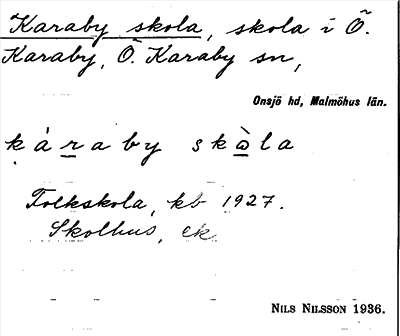 Karaby skola, skola i Ö.
Karaby, Ö. Karaby sn,
Onsjö hd, Malmöhus län.
ká̱raby skò̱la
Folkskola, kb 1927.
Skolhus, ek
NILS NILSSON 1936.